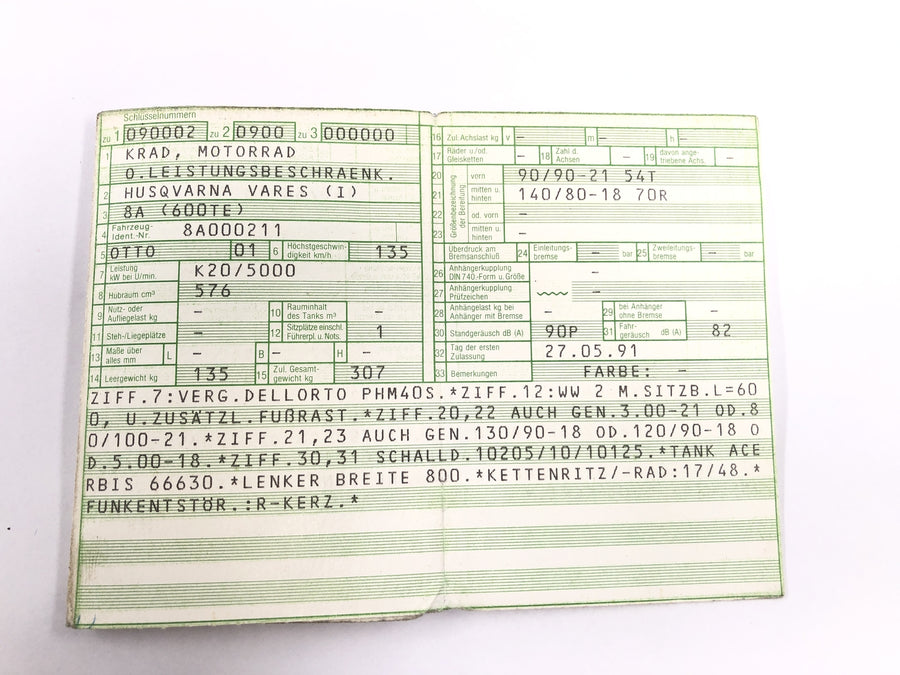 Schlüsselnummern
zu 1 090002 zu 2 0900 zu 3 000000
1 KRAD, MOTORRAD
O.LEISTUNGSBESCHRAENK.
2 HUSQVARNA VARES (I)
3 8A (600TE)
4 Fahrzeug-Ident.-Nr. 8A000211
5 OTTO 01 6 Höchstgeschwin-digkeit km/h 135
7 Leistung kW bei U/min. K20/5000
8 Hubraum cm³ 576
9 Nutz- oder Aufliegelast kg – 10 Rauminhalt des Tanks m³ –
11 Steh-/Liegeplätze – 12 Sitzplätze einschl. Führerpl. u. Nots. 1
13 Maße über alles mm L – B – H –
14 Leergewicht kg 135 15 Zul. Gesamt-gewicht kg 307
16 Zul. Achslast kg v – m – h –
17 Räder u./od. Gleisketten – 18 Zahl d. Achsen – 19 davon ange-triebene Achs. –
Größenbezeichnung der Bereifung
20 vorn 90/90-21 54T
21 mitten u. hinten 140/80-18 70R
22 od. vorn –
23 mitten u. hinten –
Überdruck am Bremsanschluß 24 Einleitungs-bremse – bar 25 Zweileitungs-bremse – bar
26 Anhängerkupplung DIN 740.-Form u. Größe –
27 Anhängerkupplung Prüfzeichen –
28 Anhängelast kg bei Anhänger mit Bremse – 29 bei Anhänger ohne Bremse –
30 Standgeräusch dB (A) 90P 31 Fahr-geräusch dB (A) 82
32 Tag der ersten Zulassung 27.05.91
33 Bemerkungen FARBE: –
ZIFF.7:VERG.DELLORTO PHM40S.*ZIFF.12:WW 2 M.SITZB.L=60
0, U.ZUSÄTZL.FUßRAST.*ZIFF.20,22 AUCH GEN.3.00-21 OD.8
0/100-21.*ZIFF.21,23 AUCH GEN.130/90-18 OD.120/90-18 O
D.5.00-18.*ZIFF.30,31 SCHALLD.10205/10/10125.*TANK ACE
RBIS 66630.*LENKER BREITE 800.*KETTENRITZ/-RAD:17/48.*
FUNKENTSTÖR.:R-KERZ.*